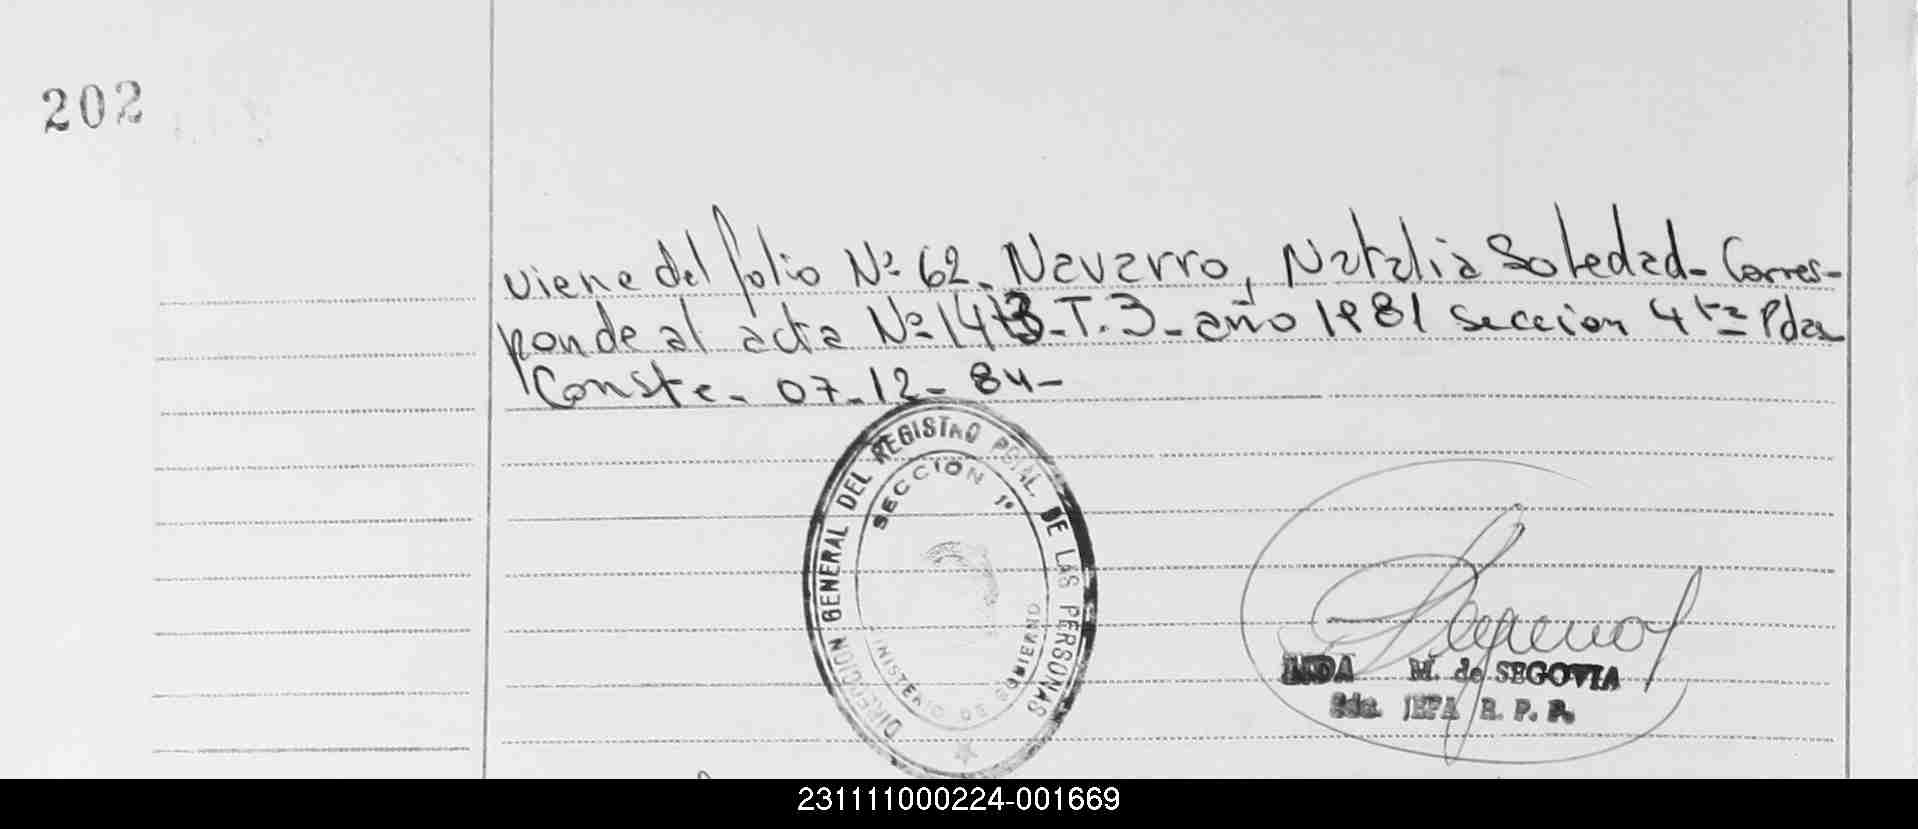 202
viene del folio Nº 62. Navarro, Natalia Soledad - Corres-
ponde al acta Nº 1413 - T. 3 - año 1981 seccion 4ta Pda
Conste - 07 - 12 - 84 -
DIRECCION GENERAL DEL REGISTRO PCIAL. DE LAS PERSONAS
SECCION 1º
MINISTERIO DE GOBIERNO
M. de SEGOVIA
Sda. JEFA R. P. P.
231111000224-001669